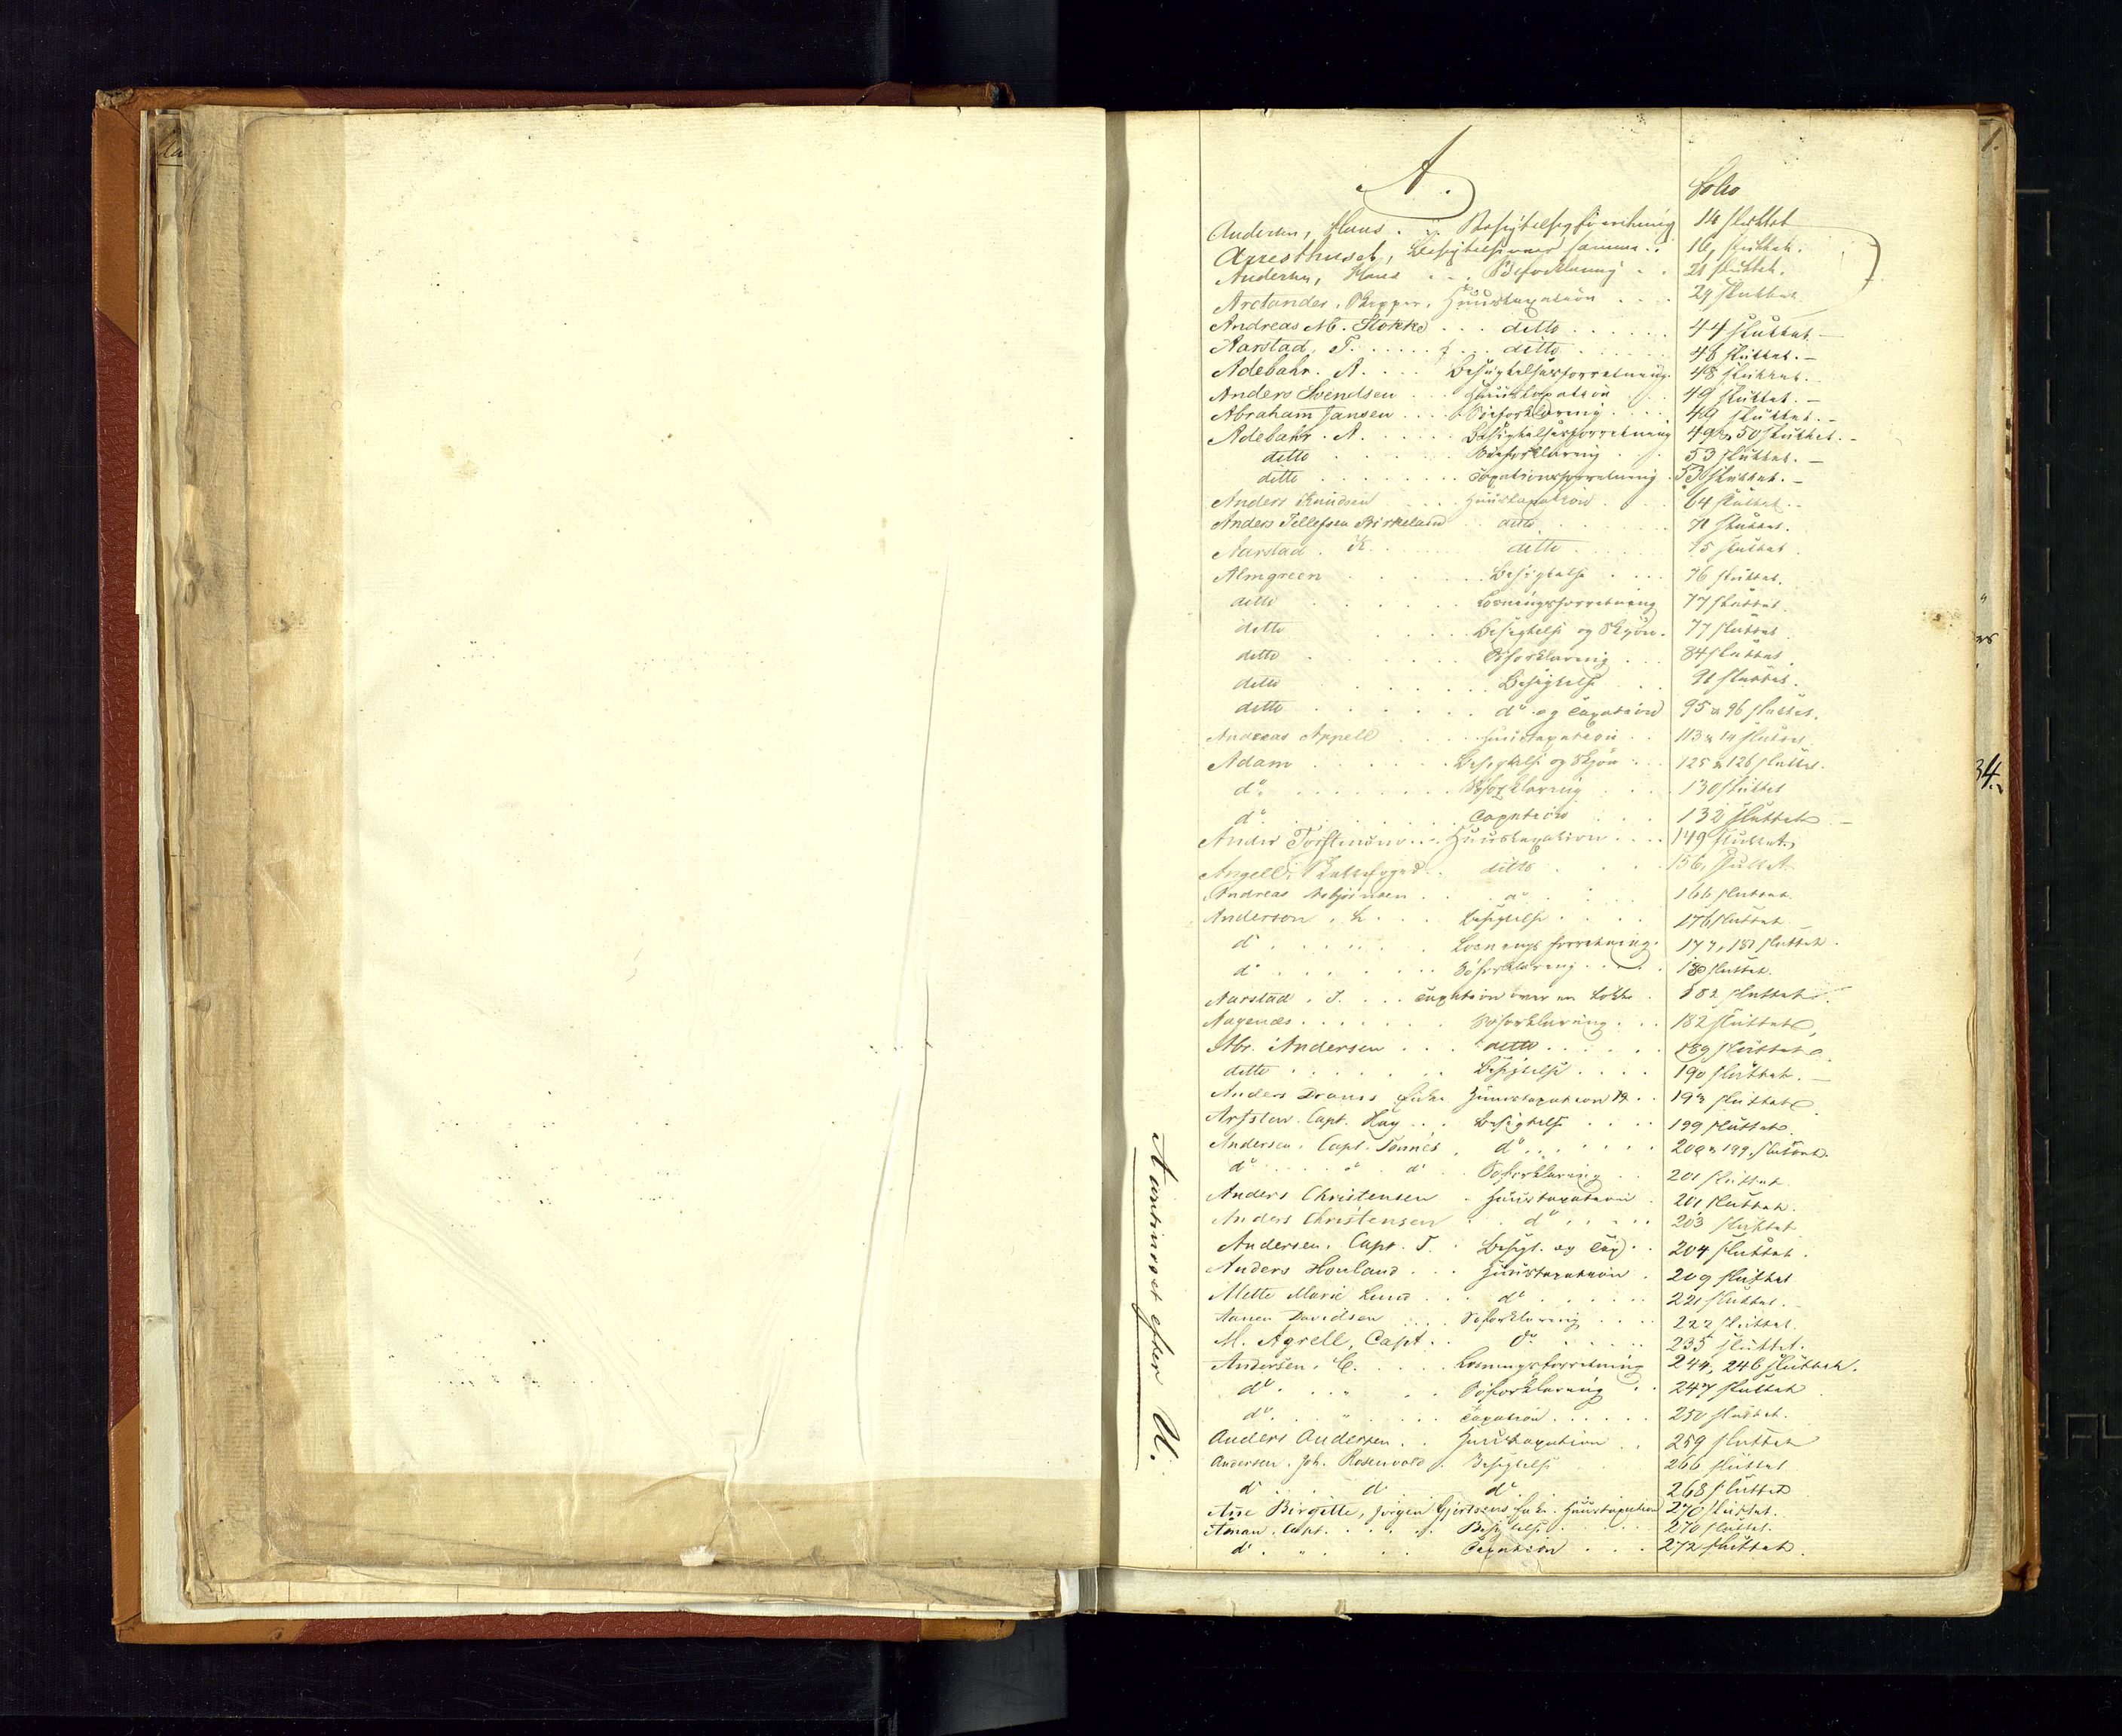 A.
Folio
Andersen, Hans . . Besigtelsesforretning 14 sluttet
Arresthuset, Besigtelse over samme . . 16, sluttet.
Andersen, Hans . . . Søforklaring . . 21 sluttet.
Arctander, Skipper, Huustaxation . . . 29 sluttet
Andreas M. Stokke . . . ditto . . . . . . 44 sluttet. —
Aarstad, T. . . . . . . ditto . . . . . . 48 sluttet. —
Adebahr. A. . . . Besigtelsesforretning. 48 sluttet. —
Anders Svendsen . . Huustaxation . . . 49 sluttet. —
Abraham Jansen . . . . Søeforklaring . . . . 49 sluttet. —
Adebahr. A. . . . . . Besigtelsesforretning 49 & 50 sluttet. —
ditto . . . . . . Søeforklaring . . . 53 sluttet. —
ditto . . . . . . Taxationsforretning . 53 sluttet. —
Anders Knudsen . . . . Huustaxation . . . 64 sluttet. —
Anders Tellefsen Birkeland . . ditto . . . . 71 sluttet.
Aarstad. K. . . . . . ditto . . . . . 75 sluttet.
Almgreen . . . . . . Besigtelse . . . . 76 sluttet.
ditto . . . . . . Losningsforretning 77 sluttet.
ditto . . . . . . Besigtelse og Skjøn. 77 sluttet.
ditto . . . . . . Søforklaring . . . 84 sluttet.
ditto . . . . . . Besigtelse . . . 91 sluttet.
ditto . . . . . . do og Taxation 95 & 96 sluttet.
Andreas Appell . . . . Huustaxation . . 113 & 14 sluttet
Adam . . . . . . Besigtelse og Skjøn . . . 125 & 126 sluttet.
do . . . . . . . . Søforklaring . . . . 130 sluttet
do . . . . . . . . Taxation . . . 132 sluttet —
Anders . . . Huustaxation . . . . 149 sluttet.
Angell, . . ditto . . . 156, sluttet
Andreas . . . do . . . 166 sluttet.
Anderson, L. . . . Besigtelse . . . . . 176 sluttet
do . . . . . . . Losningsforretning . 177, 181 sluttet.
do . . . . . . . Søforklaring . . . . . 180 sluttet.
Aarstad, T. . . . Taxation over en Løkke . 182 sluttet.
Aagenæs . . . . . . . Søforklaring . . . 182 sluttet.
Abr. Andersen . . . ditto . . . . . . 189 sluttet.
ditto . . . . . . . Besigtelse . . . . 190 sluttet. —
Anders Enke Huustaxation . . 193 sluttet.
Capt. . . . Besigtelse . . . . 199 sluttet.
Andersen, Capt. Tønnes . do . . . . . . 200 & 199, sluttet.
do . . . . . do . . Søforklaring . . . 201 sluttet.
Anders Christensen . Huustaxation . 201 sluttet.
Anders Christensen . . do . . . . . 203 sluttet
Andersen, Capt. T. . Besigt. og Tax. . . 204 sluttet.
Anders Houland . . . Huustaxation . 209 sluttet
Mette Marie Lund . . . do . . . . . . 221 sluttet.
Davidsen . . . . Søforklaring . . . . 222 sluttet.
M. Agrell, Capt. . . do . . . . . . 235 sluttet.
Andersen, C. . . . . Losningsforretning 244, 246 sluttet.
do . . . " . . Søforklaring . . . 247 sluttet
do . . . " . . . . Taxation . . . . . . 250 sluttet.
Anders Andersen . . Huustaxation . . . 259 sluttet
Andersen, Joh. Rosenvold . Besigtelse 266 sluttet
do . . . do . . . do . . . 268 sluttet
Ane Birgitte, Jørgen Gjertsens Enke. Huustaxation 270 sluttet.
Aman, Capt. . . . . . Besigtelse . . . . . 270 sluttet.
do . . " . . . . Taxation . . . 272 sluttet.
efter U.
34.